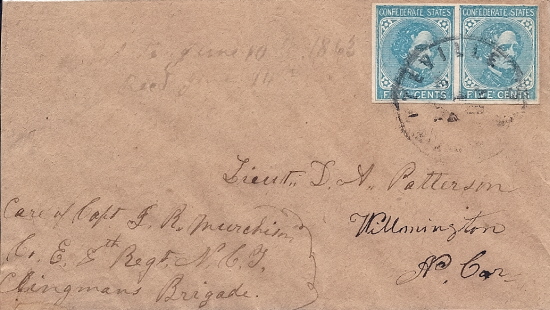 CONFEDERATE STATES CONFEDERATE STATES
FIVE CENTS FIVE CENTS
June 10 1863
Lieut. D. A. Patterson
Willmington
No. Car
Care of Capt. J. R. Murchison
Co. E. 8th Regt. N. C. T.
Clingmans Brigade.